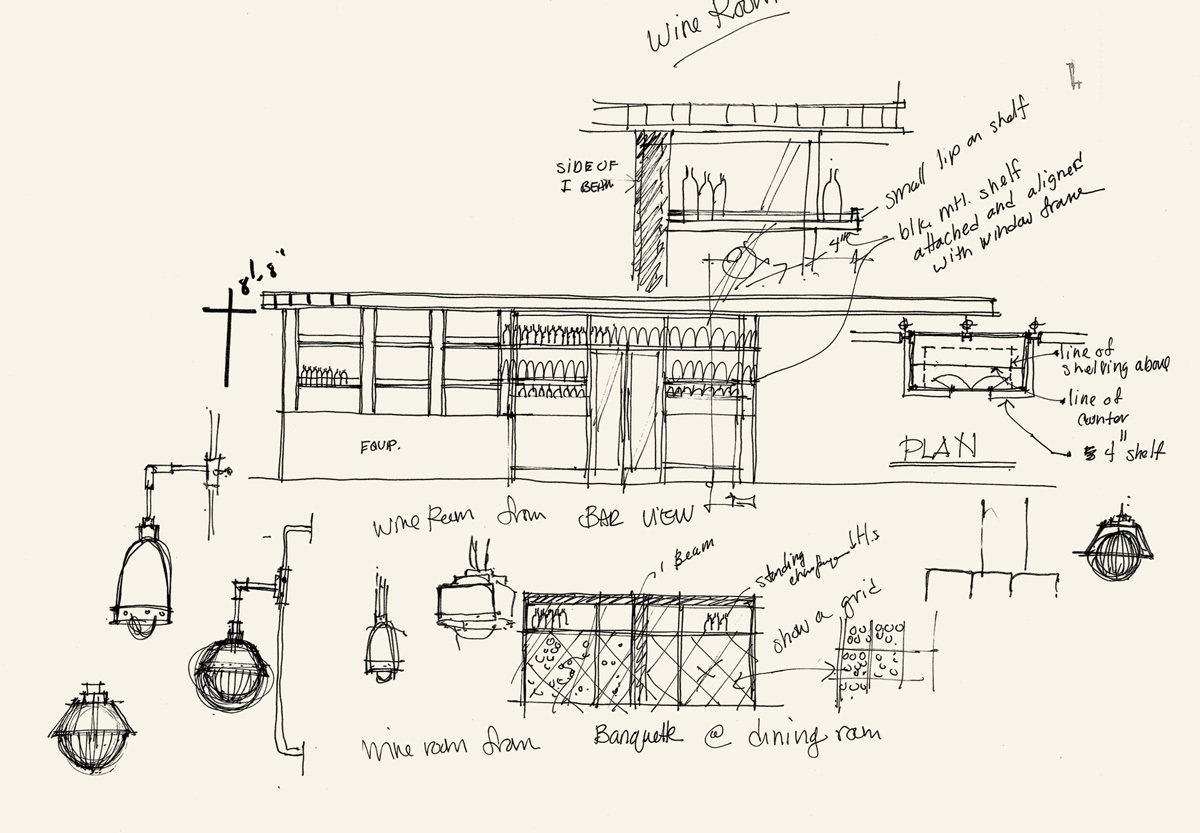 Wine Room
SIDE OF
I BEAM
small lip on shelf
blk. mtl. shelf
attached and aligned
with window frame
4"
8'-8"
line of
shelving above
line of
counter
4" shelf
PLAN
EQUIP.
Wine Room from BAR VIEW
I Beam
standing
champagne btls
show a grid
Wine room from Banquette @ dining room